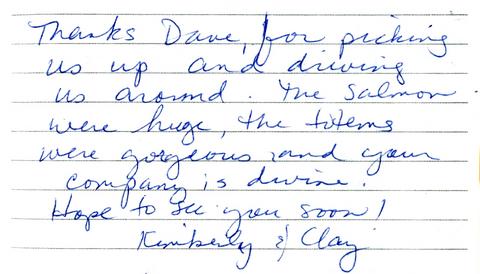 Thanks Dave, for picking
us up and driving
us around. The Salmon
were huge, the totems
were gorgeous and your
company is divine.
Hope to see you soon!
Kimberly & Clay